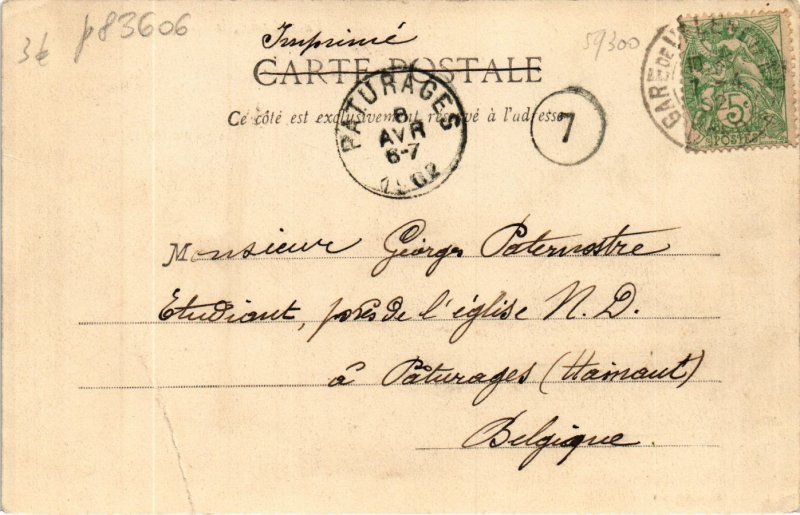 3€ p83606
Imprimé
59300
CARTE POSTALE
Ce côté est exclusivement réservé à l'adresse
PATURAGES
8
AVR
6-7
1902
7
GARE DE
5c
POSTES
Monsieur Georges Paternostre
Etudiant, près de l'église N. D.
à Pâturages (Hainaut)
Belgique.